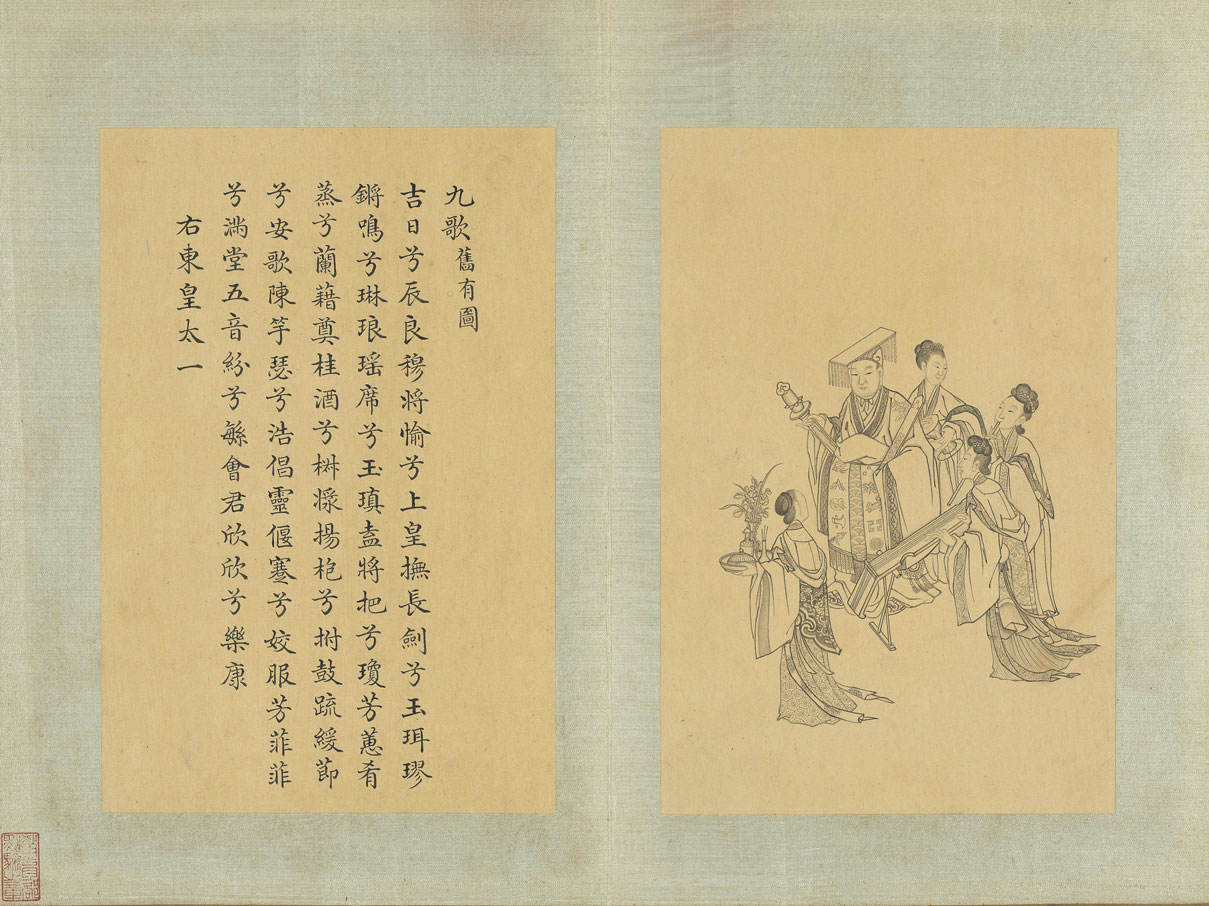 九歌舊有圖
吉日兮辰良穆將愉兮上皇撫長劍兮玉珥璆
鏘鳴兮琳琅瑤席兮玉瑱盍將把兮瓊芳蕙肴
蒸兮蘭藉奠桂酒兮椒漿揚枹兮拊鼓疏緩節
兮安歌陳竽瑟兮浩倡靈偃蹇兮姣服芳菲菲
兮滿堂五音紛兮繁會君欣欣兮樂康
右東皇太一